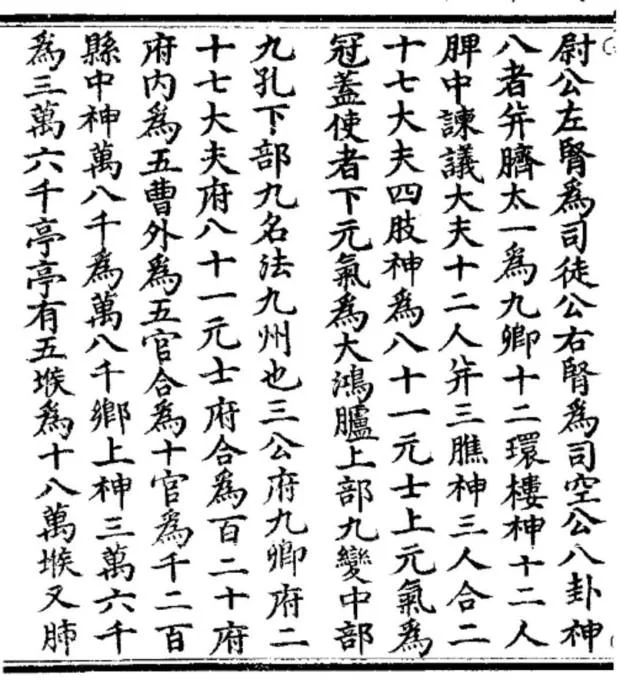 尉公左腎爲司徒公右腎爲司空公八卦神
八者并臍太一爲九卿十二環樓神十二人
脾中諫議大夫十二人并三膲神三人合二
十七大夫四肢神爲八十一元士上元氣爲
冠蓋使者下元氣爲大鴻臚上部九變中部
九孔下部九名法九州也三公府九卿府二
十七大夫府八十一元士府合爲百二十府
府内爲五曹外爲五官合爲十官爲千二百
縣中神萬八千爲萬八千鄉上神三萬六千
爲三萬六千亭亭有五堠爲十八萬堠又肺